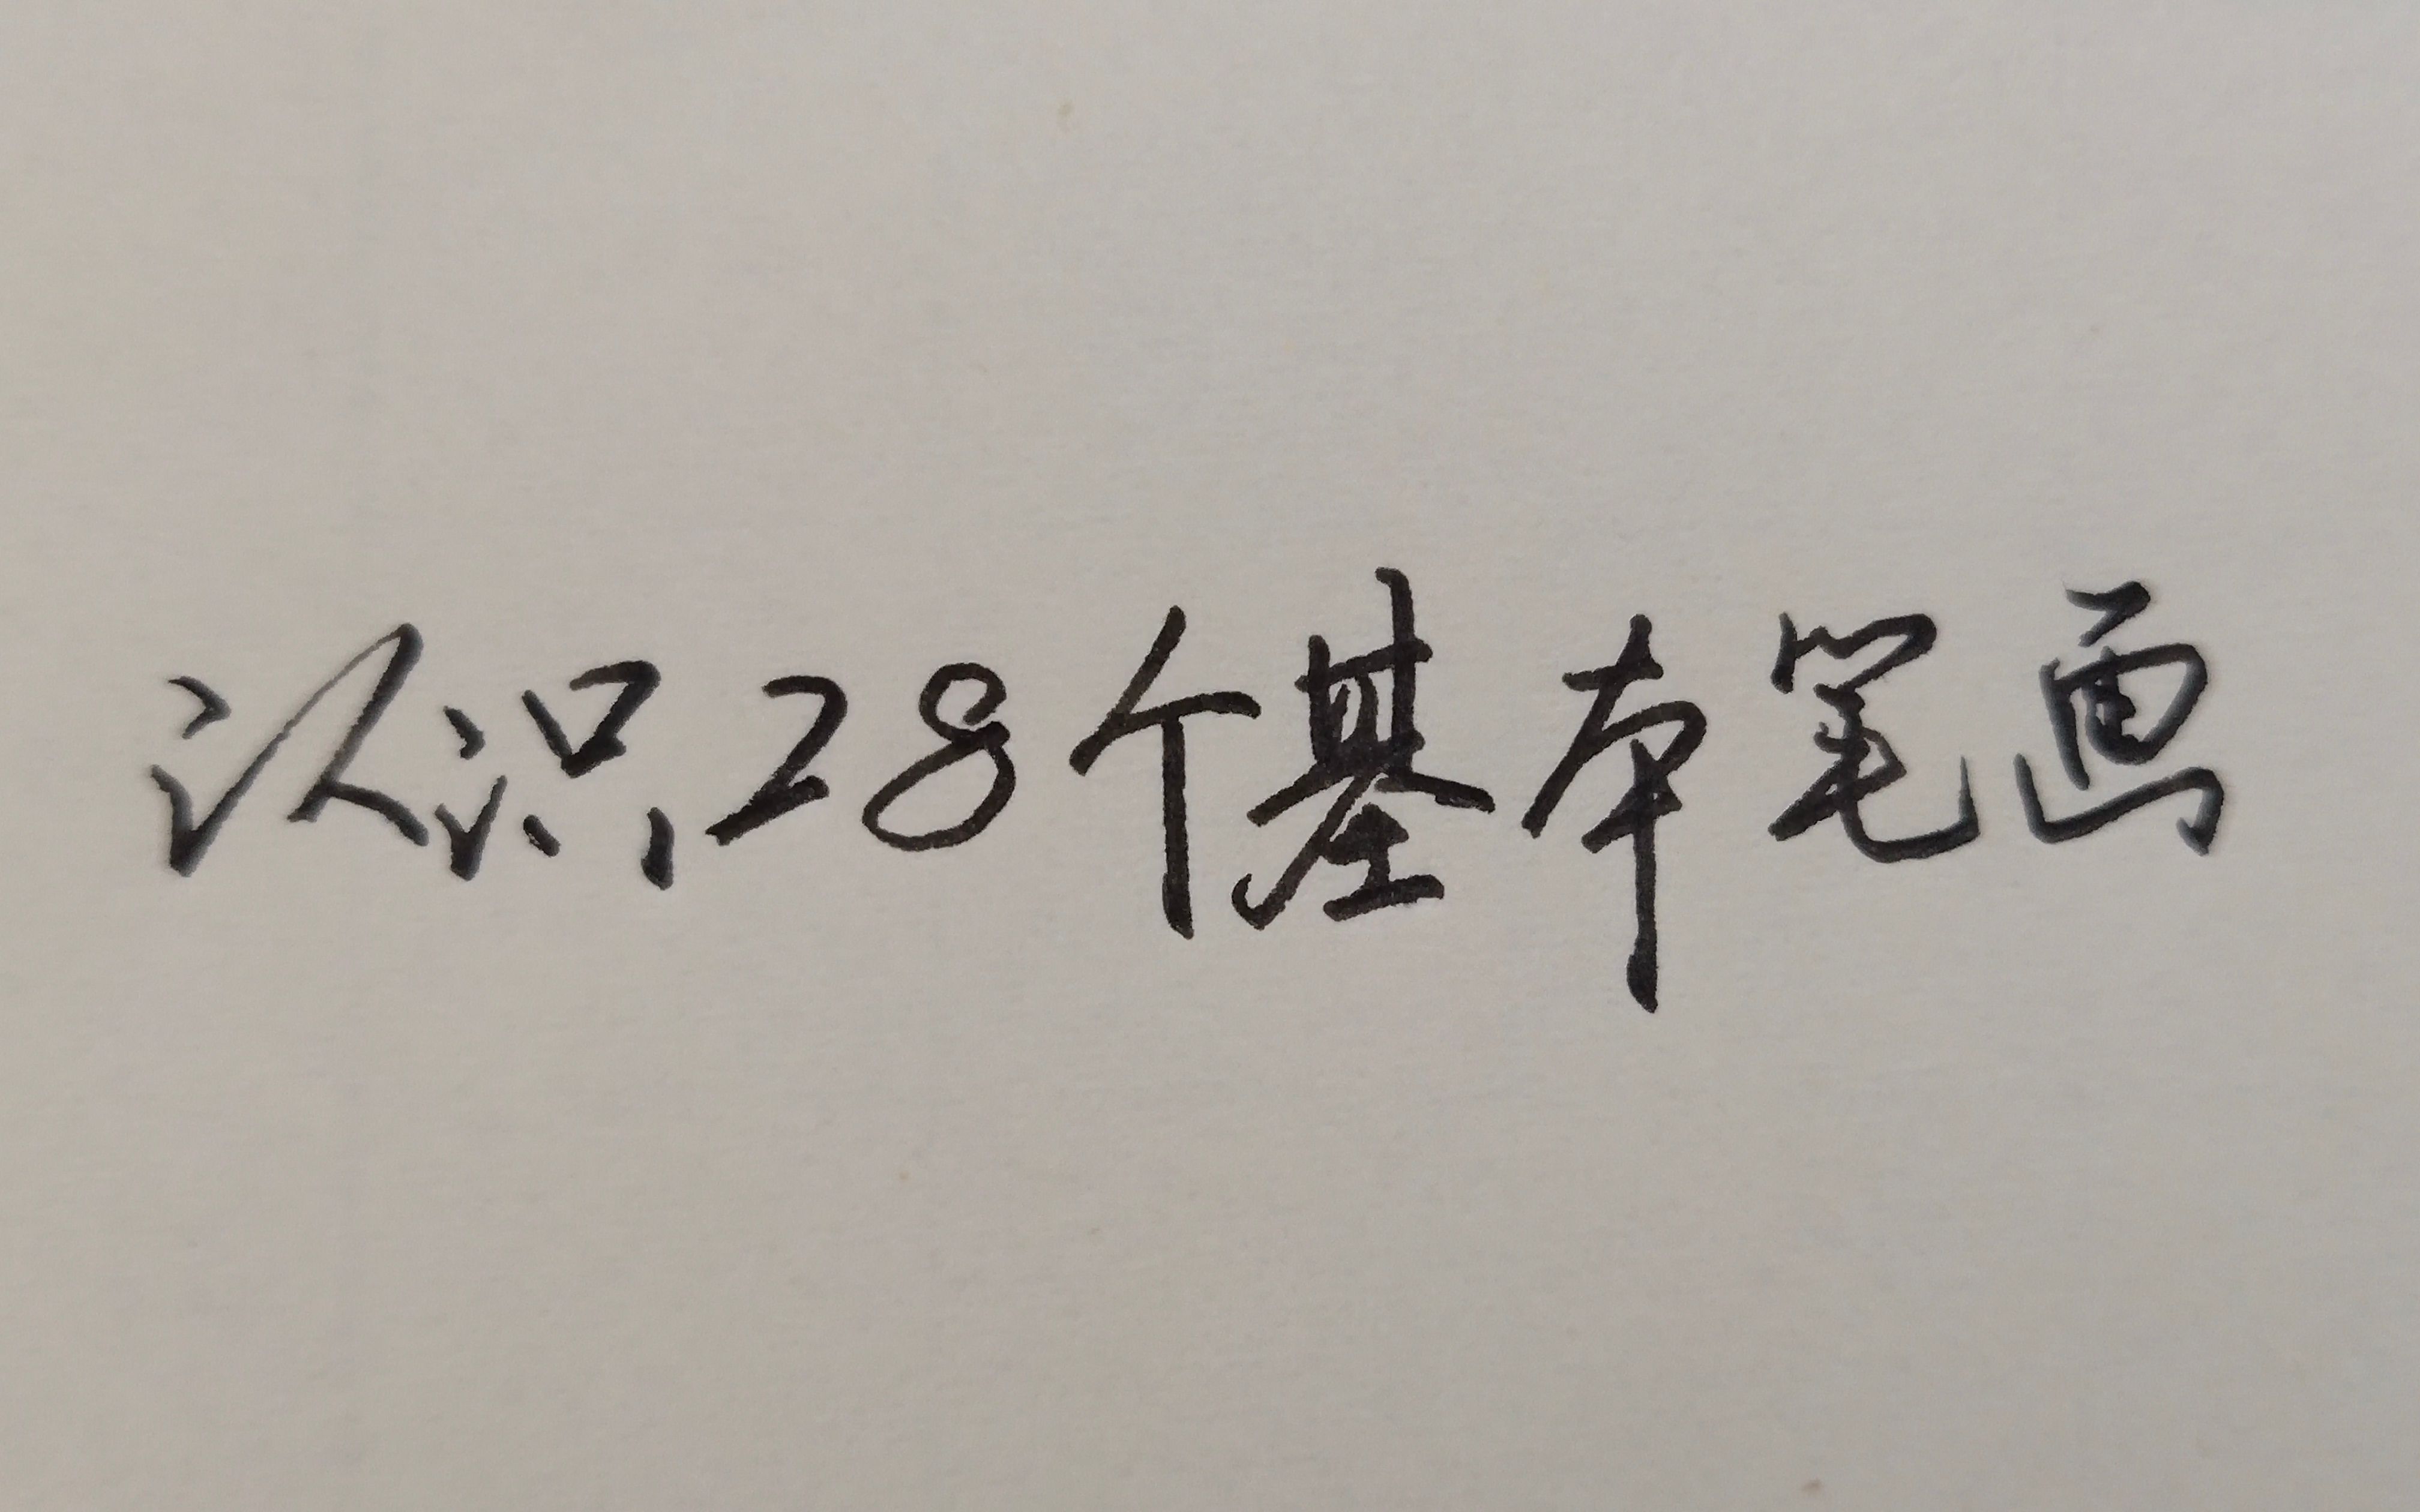 认识28个基本笔画